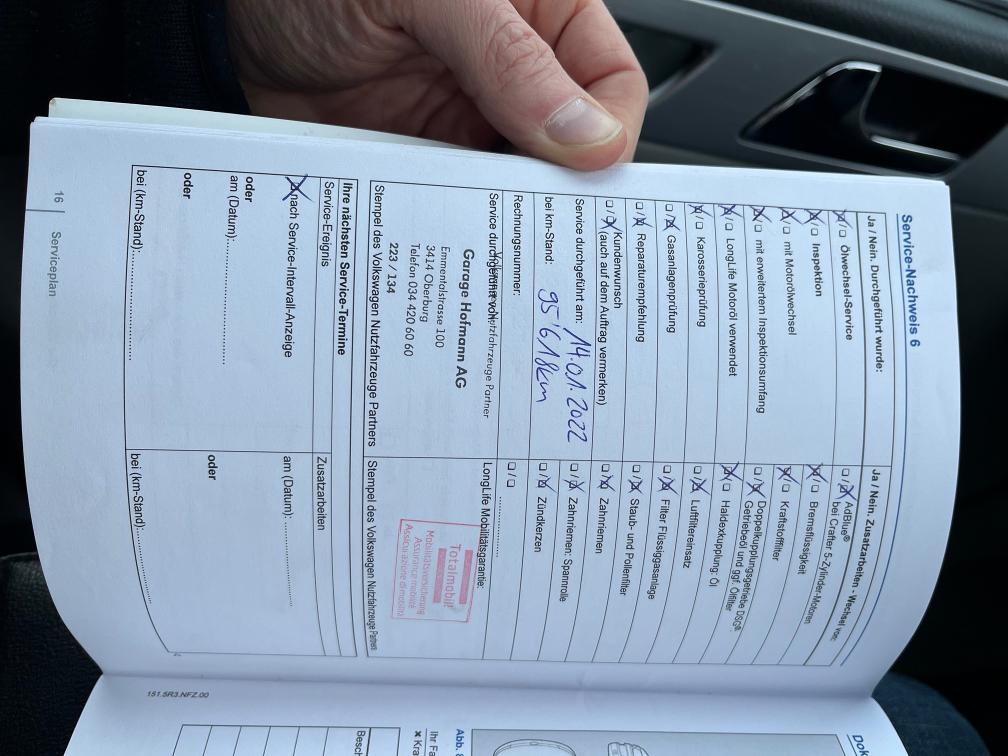 Service-Nachweis 6
Ja / Nein. Durchgeführt wurde:
☒/☐ Ölwechsel-Service
☒/☐ Inspektion
☒/☐ mit Motorölwechsel
☒/☐ mit erweitertem Inspektionsumfang
☒/☐ LongLife Motoröl verwendet
☒/☐ Karosserieprüfung
☐/☒ Gasanlagenprüfung
☐/☒ Reparaturempfehlung
☐/☒ Kundenwunsch
(auch auf dem Auftrag vermerken)
Service durchgeführt am: 14.01.2022
bei km-Stand: 95'618km
Rechnungsnummer:
Service durchgeführt von:
Nutzfahrzeuge Partner
Garage Hofmann AG
Emmentalstrasse 100
3414 Oberburg
Telefon 034 420 60 60
223 / 134
Stempel des Volkswagen Nutzfahrzeuge Partners
Ja / Nein. Zusatzarbeiten - Wechsel von:
☐/☒ AdBlue®
bei Crafter 5-Zylinder-Motoren
☒/☐ Bremsflüssigkeit
☒/☐ Kraftstofffilter
☐/☒ Doppelkupplungsgetriebe DSG®:
Getriebeöl und ggf. Ölfilter
☒/☐ Haldexkupplung: Öl
☐/☒ Luftfiltereinsatz
☐/☒ Filter Flüssiggasanlage
☐/☒ Staub- und Pollenfilter
☐/☒ Zahnriemen
☐/☒ Zahnriemen: Spannrolle
☐/☒ Zündkerzen
☐/☐ ....................
LongLife Mobilitätsgarantie:
Totalmobil!
Mobilitätsversicherung
Assurance mobilité
Assicurazione di mobilità
Stempel des Volkswagen Nutzfahrzeuge Partners
Ihre nächsten Service-Termine
Service-Ereignis
☒ nach Service-Intervall-Anzeige
oder
am (Datum): ....................
oder
bei (km-Stand): ....................
Zusatzarbeiten
am (Datum): ....................
oder
bei (km-Stand): ....................
16 | Serviceplan
151.5R3.NFZ.00
Abb.
Ihr Fa
× Kra
Besch
Dok